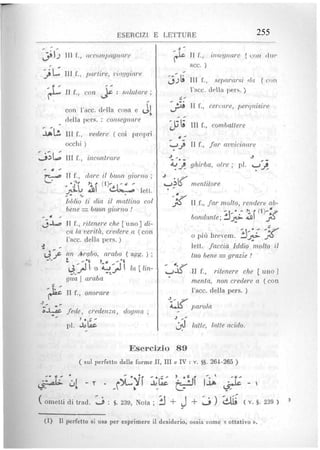 ESERCIZI E LETTURE 255
رافق III f., accompagnare
سافر III f., partire, viaggiare
سلم II f., con على : salutare ;
con l'acc. della cosa e إلى
della pers. : consegnare
شاهد III f., vedere ( coi propri
occhi )
صادف III f., incontrare
صبح II f., dare il buon giorno ;
lett.
Iddio ti dia il mattino col
bene = buon giorno !
صدق II f., ritenere che [ uno ] di-
ca la verità, credere a ( con
l'acc. della pers. )
un Arabo, arabo ( agg. ) ;
la [ lin-
gua ] araba
عظم II f., onorare
عقيدة fede, credenza, dogma ;
pl. عقائد
علم II f., insegnare ( con due
acc. )
فارق III f., separarsi da ( con
l'acc. della pers. )
فتش II f., cercare, perquisire
قاتل III f., combattere
قرب II f., far avvicinare
قربة ghirba, otre ; pl. قرب
كاذب mentitore
كثر II f., far molto, rendere ab-
bondante ;
o più brevem.
lett. faccia Iddio molto il
tuo bene = grazie !
كذب II f., ritenere che [ uno ]
menta, non credere a ( con
l'acc. della pers. )
كلمة parola
لبن latte, latte acido.
Esercizio 89
( sul perfetto delle forme II, III e IV : v. §§. 264-265 )
( ometti di trad. ف : §. 239, Nota ; ( v. §. 239 )
(1) Il perfetto si usa per esprimere il desiderio, ossia come « ottativo ».